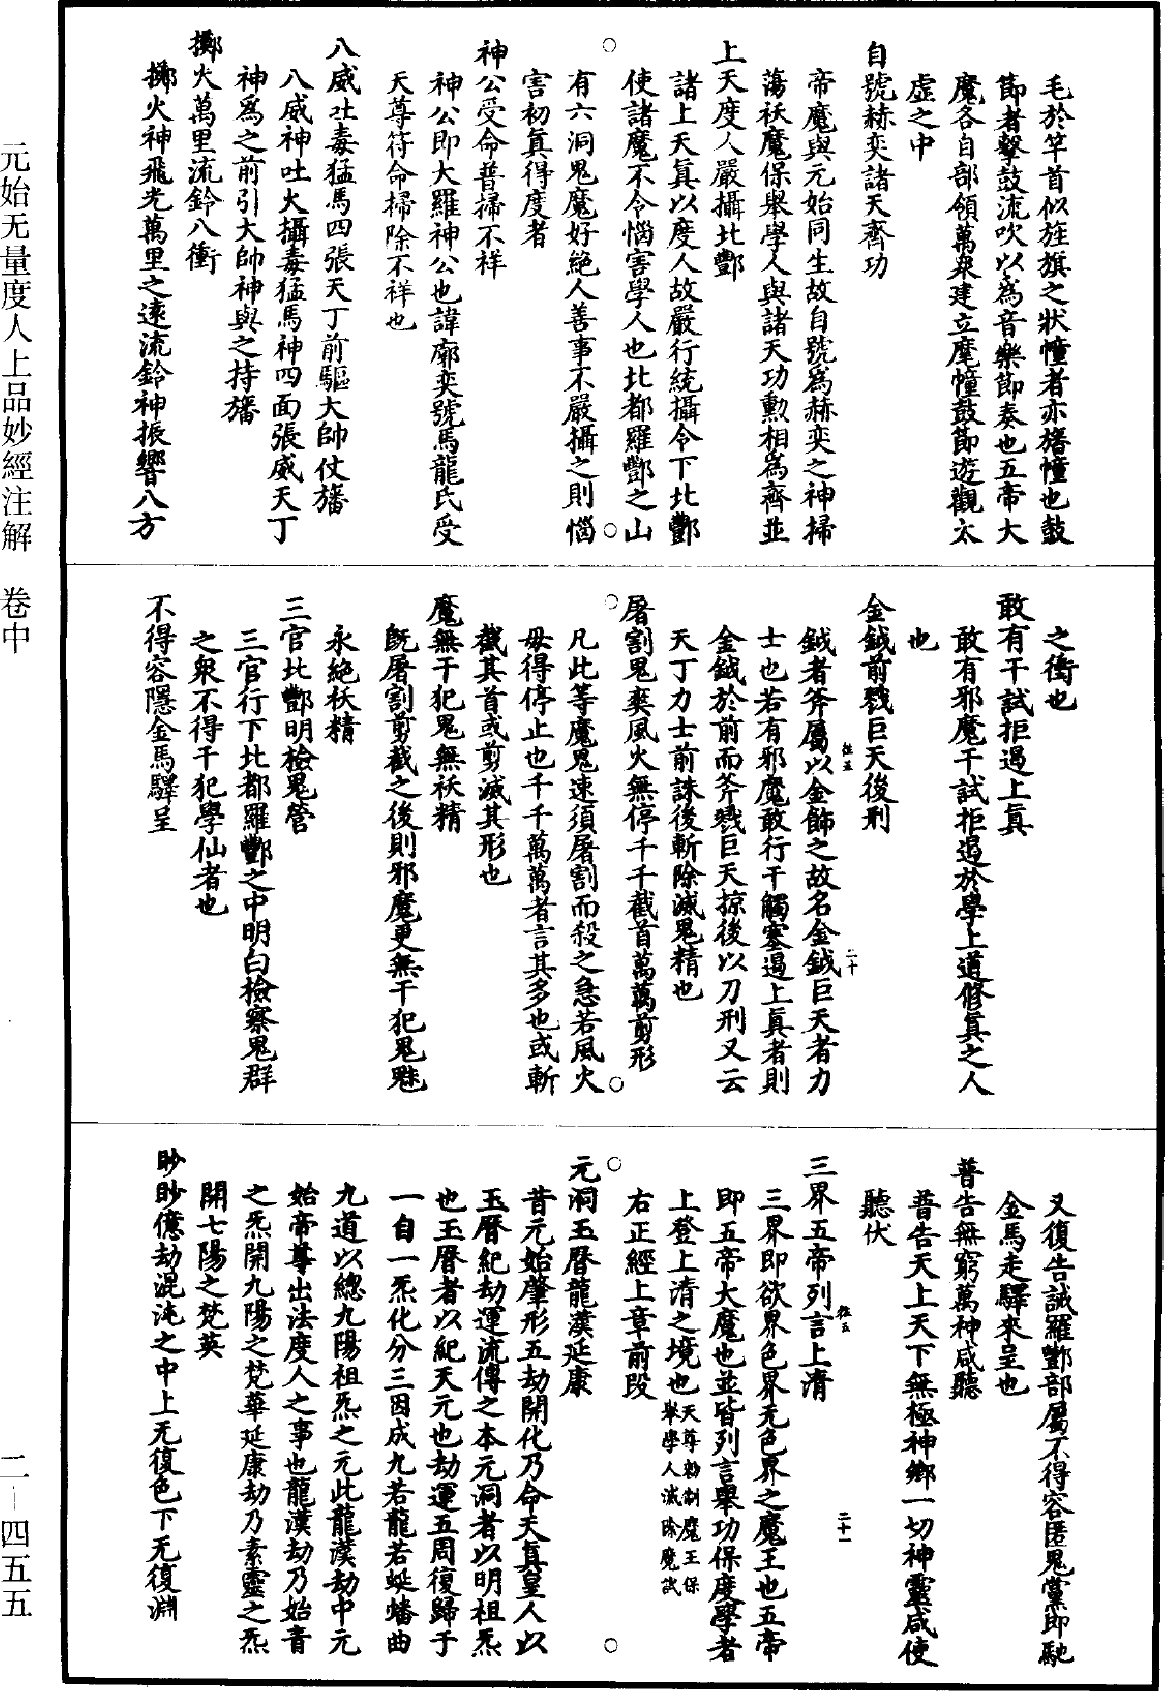 毛於竿首似旌旗之狀幢者亦旛幢也鼓
節者擊鼓流吹以為音樂節奏也五帝大
魔各自部領萬衆建立麾幢鼓節遊觀太
虛之中
自號赫奕諸天齊功
帝魔與元始同生故自號為赫奕之神掃
蕩袄魔保舉學人與諸天功勲相為齊並
上天度人嚴攝北酆
諸上天眞以度人故嚴行統攝令下北酆
使諸魔不令惱害學人也北都羅酆之山
有六洞鬼魔好絕人善事不嚴攝之則惱
害初眞得度者
神公受命普掃不祥
神公即大羅神公也諱廓奕號馬龍氏受
天尊符命掃除不祥也
八威吐毒猛馬四張天丁前驅大帥仗旛
八威神吐火攝毒猛馬神四面張威天丁
神為之前引大帥神與之持旛
擲火萬里流鈴八衝
擲火神飛光萬里之遠流鈴神振響八方
之衝也
敢有干試拒遏上眞
敢有邪魔干試拒遏於學上道修眞之人
也
金鉞前戮巨天後刑
鉞者斧屬以金飾之故名金鉞巨天者力
士也若有邪魔敢行干觸塞遏上眞者則
金鉞於前而斧戮巨天掠後以刀刑又云
天丁力士前誅後斬除滅鬼精也
屠割鬼爽風火無停千千截首萬萬剪形
凡此等魔鬼速須屠割而殺之急若風火
毋得停止也千千萬萬者言其多也或斬
截其首或剪滅其形也
魔無干犯鬼無袄精
旣屠割剪截之後則邪魔更無干犯鬼魅
永絕袄精
三官北酆明檢鬼營
三官行下北都羅酆之中明白檢察鬼群
之衆不得干犯學仙者也
不得容隱金馬驛呈
又復告誡羅酆部屬不得容匿鬼黨即馳
金馬走驛來呈也
普告無窮萬神咸聽
普告天上天下無極神鄉一切神靈咸使
聽伏
三界五帝列言上清
三界即欲界色界无色界之魔王也五帝
即五帝大魔也並皆列言舉功保度學者
上登上清之境也天尊勑制魔王保
舉學人滅除魔試
右正經上章前段
元洞玉曆龍漢延康
昔元始肇形五劫開化乃命天眞皇人以
玉曆紀劫運流傳之本元洞者以明祖炁
也玉曆者以紀天元也劫運五周復歸于
一自一炁化分三因成九若龍若蜒蟠曲
九道以總九陽祖炁之元此龍漢劫中元
始帝尊出法度人之事也龍漢劫乃始青
之炁開九陽之梵華延康劫乃素靈之炁
開七陽之梵英
眇眇億劫混沌之中上无復色下无復淵
二十
二十一
元始无量度人上品妙經注解　卷中
二—四五五